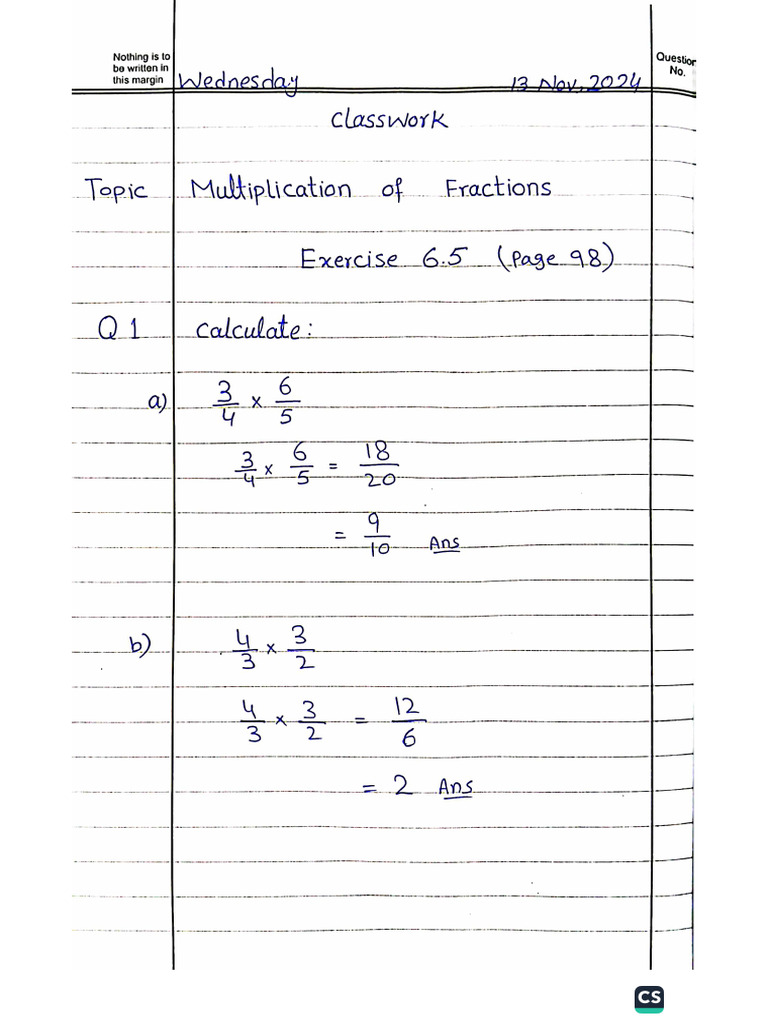 Nothing is to
be written in
this margin
Question
No.
Wednesday 13 Nov, 2024
Classwork
Topic Multiplication of Fractions
Exercise 6.5 (Page 98)
Q1 Calculate:
a) 3/4 × 6/5
3/4 × 6/5 = 18/20
= 9/10 Ans
b) 4/3 × 3/2
4/3 × 3/2 = 12/6
= 2 Ans
CS